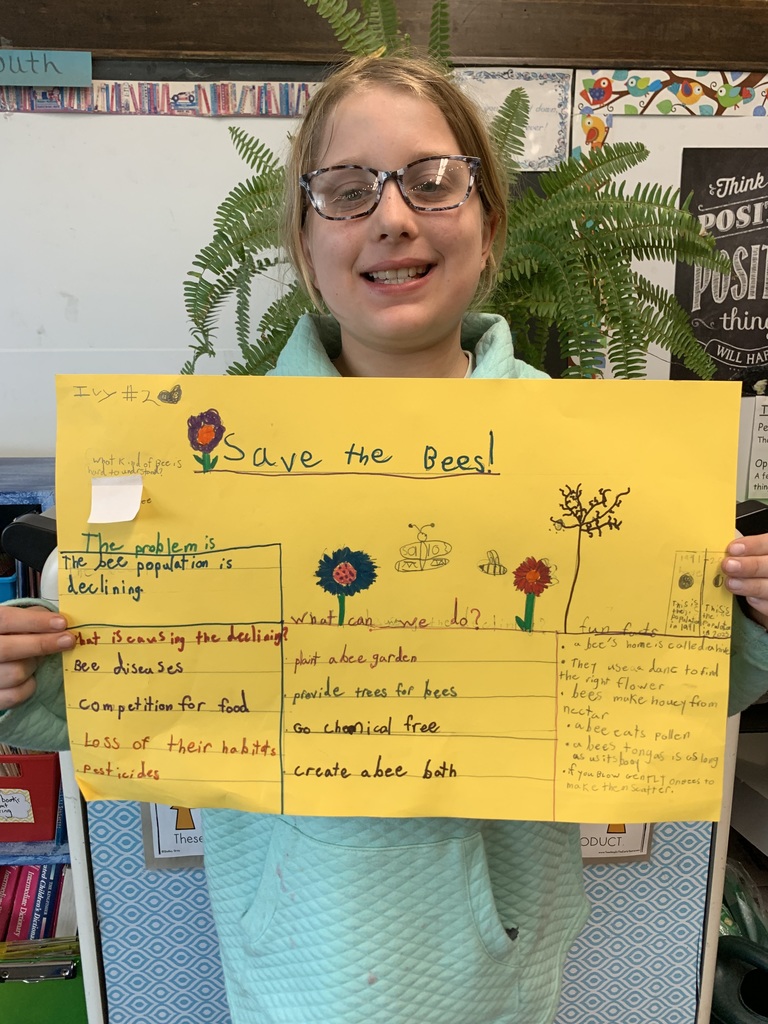 outh
Think
POSIT
POSIT
thing
WILL HA
Ivy #2
Save the Bees!
What Kind of Bee is
hard to understand?
ee
The problem is
The bee population is
declining.
What is causing the declining?
Bee diseases
Competition for food
Loss of their habitats
Pesticides
What can we do?
plant a bee garden
provide trees for bees
Go chemical free
create a bee bath
This is
population
This is
population
fun facts
• a bee's home is called a
• They use a danc to find
the right flower
• bees make honey from
nectar
• a bee eats pollen
• a bees tongas is as long
as its body
• if you blow gently on bees to
make them scatter.
These
ODUCT.
Intermediate Dictionary
and Children's Dictionary